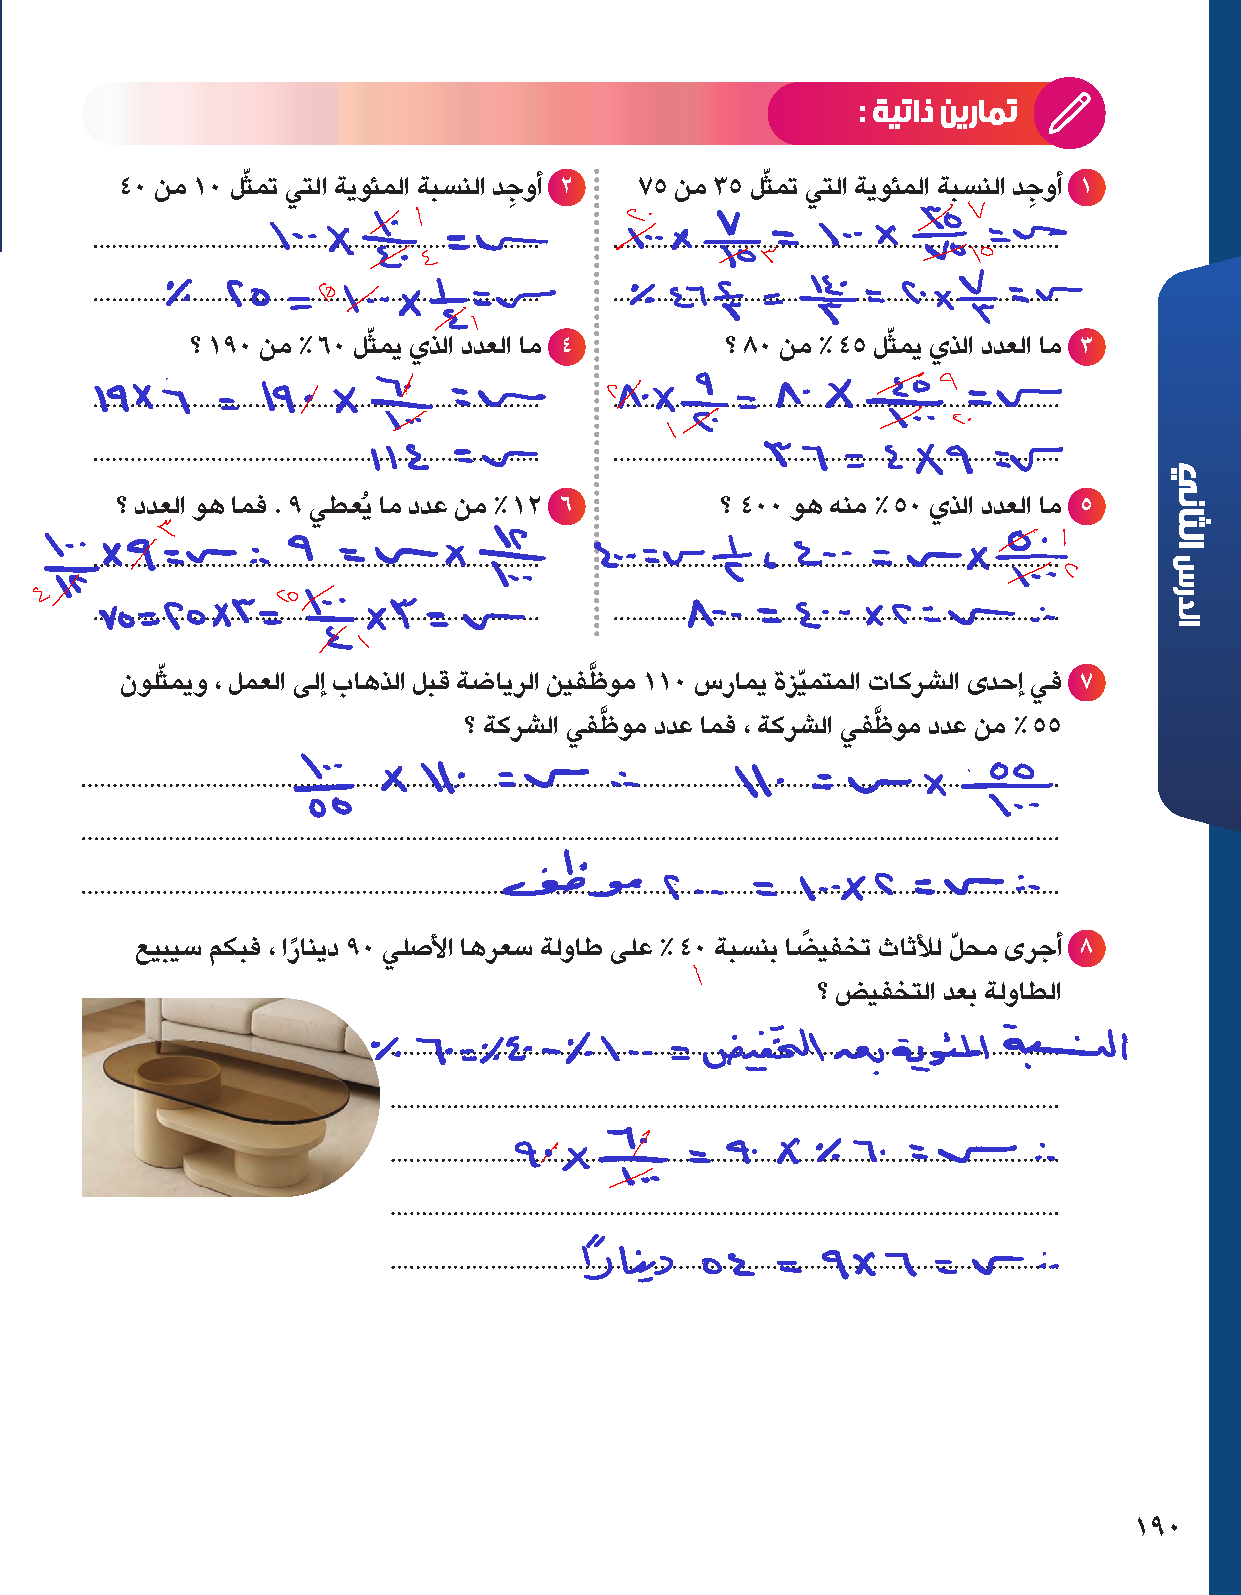 تمارين ذاتية :
١ أوجِد النسبة المئوية التي تمثّل ٣٥ من ٧٥
س = ٣٥/٧٥ × ١٠٠ = ٧/١٥ × ١٠٠
س = ٧/٣ × ٢٠ = ١٤٠/٣ = ٤٦ ٢/٣ ٪
٢ أوجِد النسبة المئوية التي تمثّل ١٠ من ٤٠
س = ١٠/٤٠ × ١٠٠
س = ١/٤ × ١٠٠ = ٢٥ ٪
٣ ما العدد الذي يمثّل ٤٥ ٪ من ٨٠ ؟
س = ٤٥/١٠٠ × ٨٠ = ٩/٢٠ × ٨٠
س = ٩ × ٤ = ٣٦
٤ ما العدد الذي يمثّل ٦٠ ٪ من ١٩٠ ؟
س = ٦٠/١٠٠ × ١٩٠ = ٦ × ١٩
س = ١١٤
٥ ما العدد الذي ٥٠ ٪ منه هو ٤٠٠ ؟
٥٠/١٠٠ × س = ٤٠٠ ، ١/٢ س = ٤٠٠
∴ س = ٢ × ٤٠٠ = ٨٠٠
٦ ١٢ ٪ من عدد ما يُعطي ٩ . فما هو العدد ؟
١٢/١٠٠ × س = ٩ ∴ س = ٩ × ١٠٠/١٢
س = ٣ × ١٠٠/٤ = ٣ × ٢٥ = ٧٥
٧ في إحدى الشركات المتميّزة يمارس ١١٠ موظَّفين الرياضة قبل الذهاب إلى العمل ، ويمثّلون
٥٥ ٪ من عدد موظَّفي الشركة ، فما عدد موظَّفي الشركة ؟
٥٥/١٠٠ × س = ١١٠ ∴ س = ١١٠ × ١٠٠/٥٥
∴ س = ٢ × ١٠٠ = ٢٠٠ موظف
٨ أجرى محلّ للأثاث تخفيضًا بنسبة ٤٠ ٪ على طاولة سعرها الأصلي ٩٠ دينارًا ، فبكم سيبيع
الطاولة بعد التخفيض ؟
النسبة المئوية بعد التخفيض = ١٠٠ ٪ - ٤٠ ٪ = ٦٠ ٪
∴ س = ٦٠ ٪ × ٩٠ = ٦٠/١٠٠ × ٩٠
∴ س = ٦ × ٩ = ٥٤ دينارًا
الدرس الثاني
١٩٠